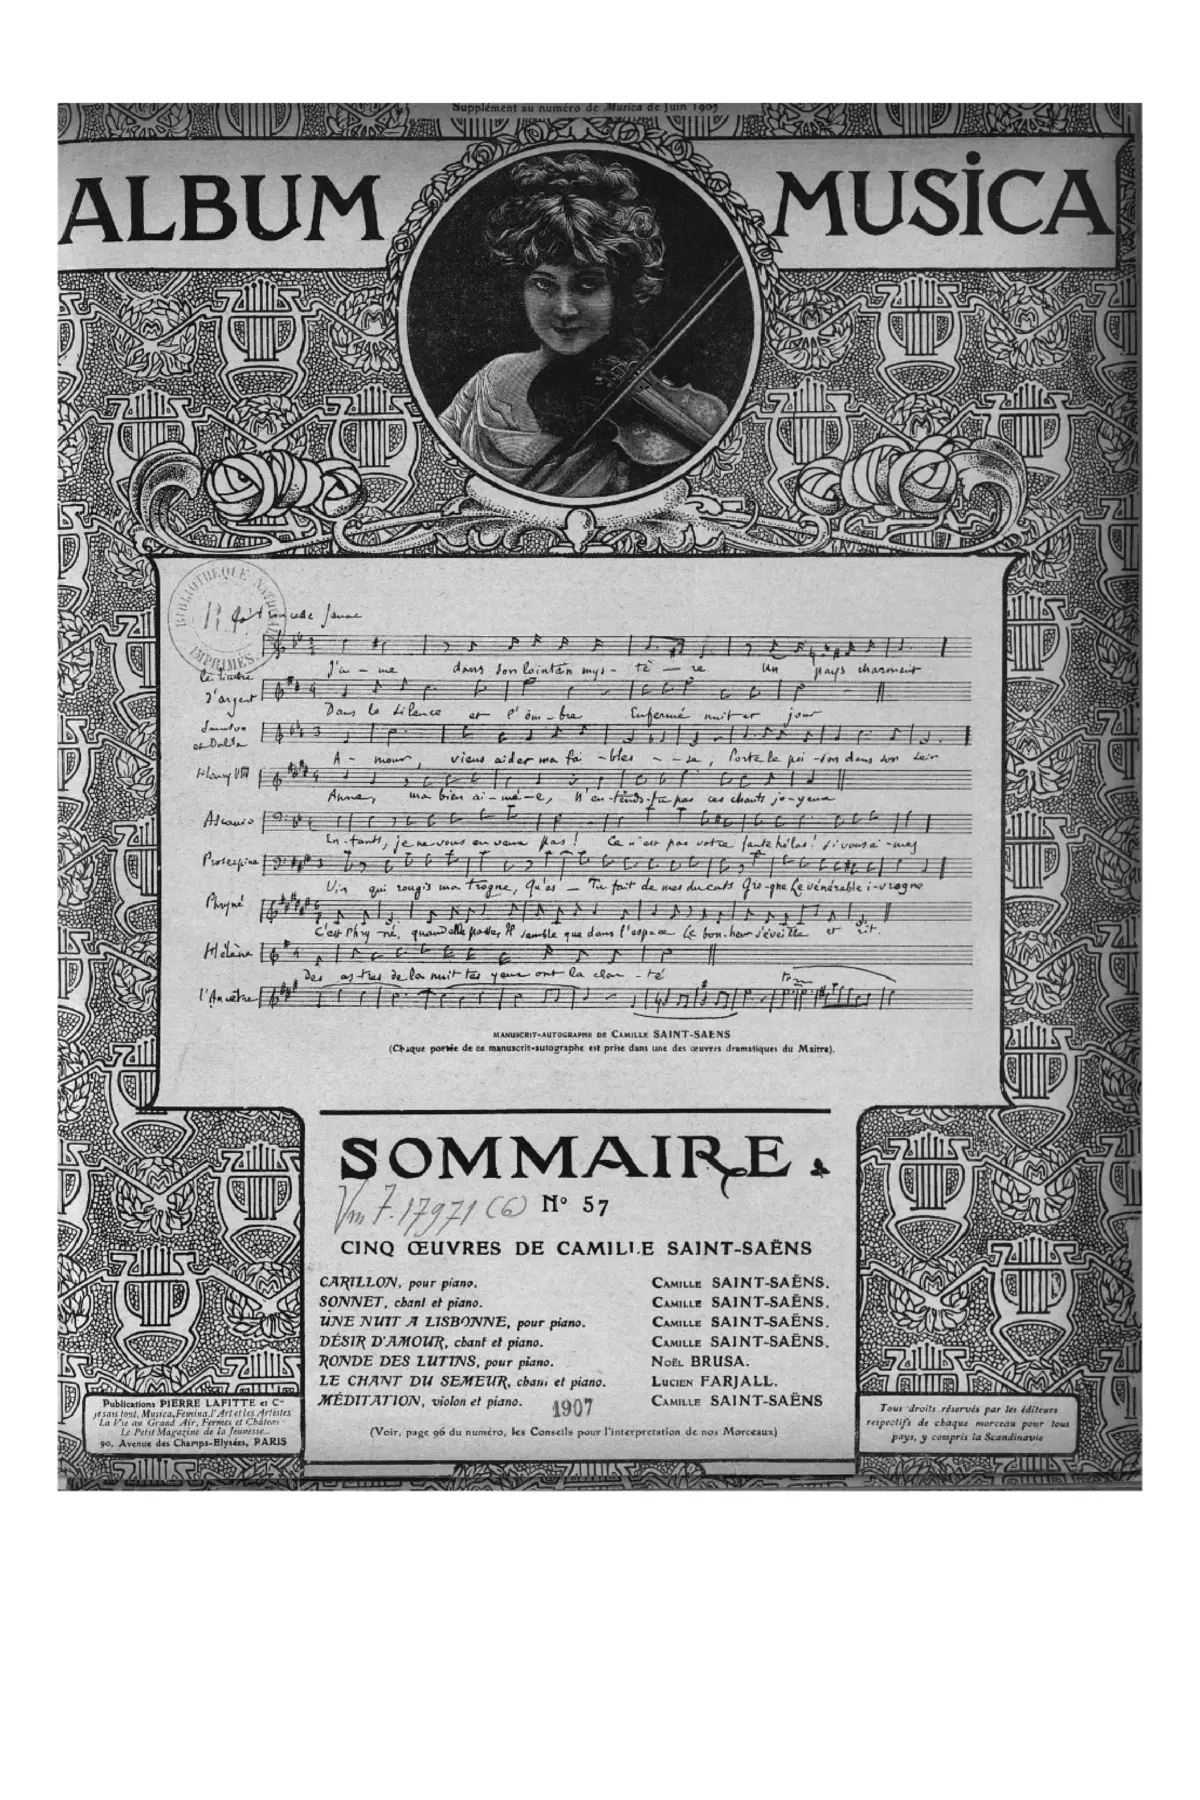 Supplément au numéro de Musica de Juin 1907
ALBUM MUSICA
BIBLIOTHÈQUE NATIONALE
R.F.
IMPRIMÉS.
J'ai - me dans son lointain mys - tè - re Un pays charmant
le timbre d'argent
Dans le silence et l'om - bre Enfermé nuit et jour
Samson et Dalila
A - mour, viens aider ma fai - bles - - se, Porte le poi - son dans son sein
Henry VIII
Anne, ma bien ai - mé - e, N'en - tends-tu pas ces chants jo - yeux
Ascanio
En - fants, je ne vous en veux pas! Ce n'est pas votre faute hélas! si vous ai - mez
Proserpine
Vin qui rougis ma trogne, Qu'as - Tu fait de mes ducats Gro - gne Le vénérable i - vrogne
Phryné
C'est Phry - né, quand elle passe, Il semble que dans l'espace Le bon - heur s'éveille et rit.
Hélène
Des as - tres de la nuit tes yeux ont la clar - té
l'Ancêtre
MANUSCRIT-AUTOGRAPHE DE CAMILLE SAINT-SAENS
(Chaque portée de ce manuscrit-autographe est prise dans une des œuvres dramatiques du Maître).
SOMMAIRE
Vm 7. 17971 (6) N° 57
CINQ ŒUVRES DE CAMILLE SAINT-SAËNS
CARILLON, pour piano. CAMILLE SAINT-SAËNS.
SONNET, chant et piano. CAMILLE SAINT-SAËNS.
UNE NUIT A LISBONNE, pour piano. CAMILLE SAINT-SAËNS.
DÉSIR D'AMOUR, chant et piano. CAMILLE SAINT-SAËNS.
RONDE DES LUTINS, pour piano. NOËL BRUSA.
LE CHANT DU SEMEUR, chant et piano. LUCIEN FARJALL.
MÉDITATION, violon et piano. CAMILLE SAINT-SAËNS
1907
(Voir, page 96 du numéro, les Conseils pour l'interprétation de nos Morceaux)
Publications PIERRE LAFITTE et Cie
je sais tout, Musica, Femina, l'Art et les Artistes
La Vie au Grand Air, Fermes et Châteaux
Le Petit Magazine de la Jeunesse...
90, Avenue des Champs-Elysées, PARIS
Tous droits réservés par les éditeurs
respectifs de chaque morceau pour tous
pays, y compris la Scandinavie